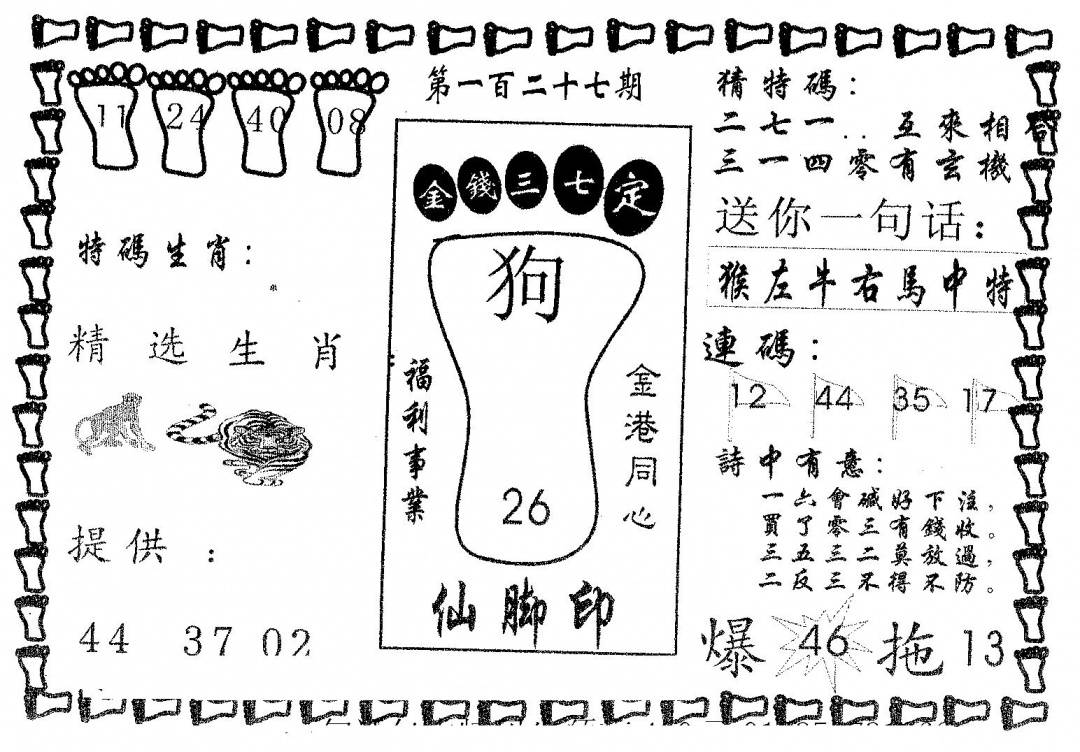 第一百二十七期
11 24 40 08
特碼生肖：
精选生肖
提供：
44 37 02
金錢三七定
狗
26
福利事業
金港同心
仙脚印
猜特碼：
二七一..互來相合
三一四零有玄機
送你一句话：
猴左牛右馬中特
連碼：
12 44 35 17
詩中有意：
一六會碱好下注，
買了零三有錢收。
三五三二莫放過，
二反三不得不防。
爆 46 拖 13